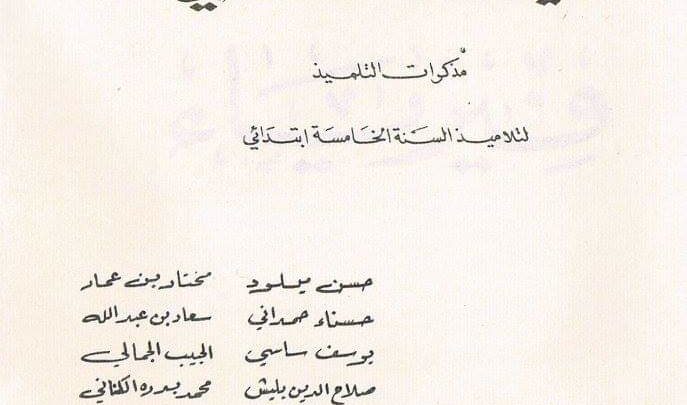 مذكرات التلميذ
لتلاميذ السنة الخامسة ابتدائي
حسن ميلود مختار بن عمار
حسناء حمداني سعاد بن عبد الله
يوسف ساسي الجيب الجمالي
صلاح الدين بليش محمد بدره الكناني